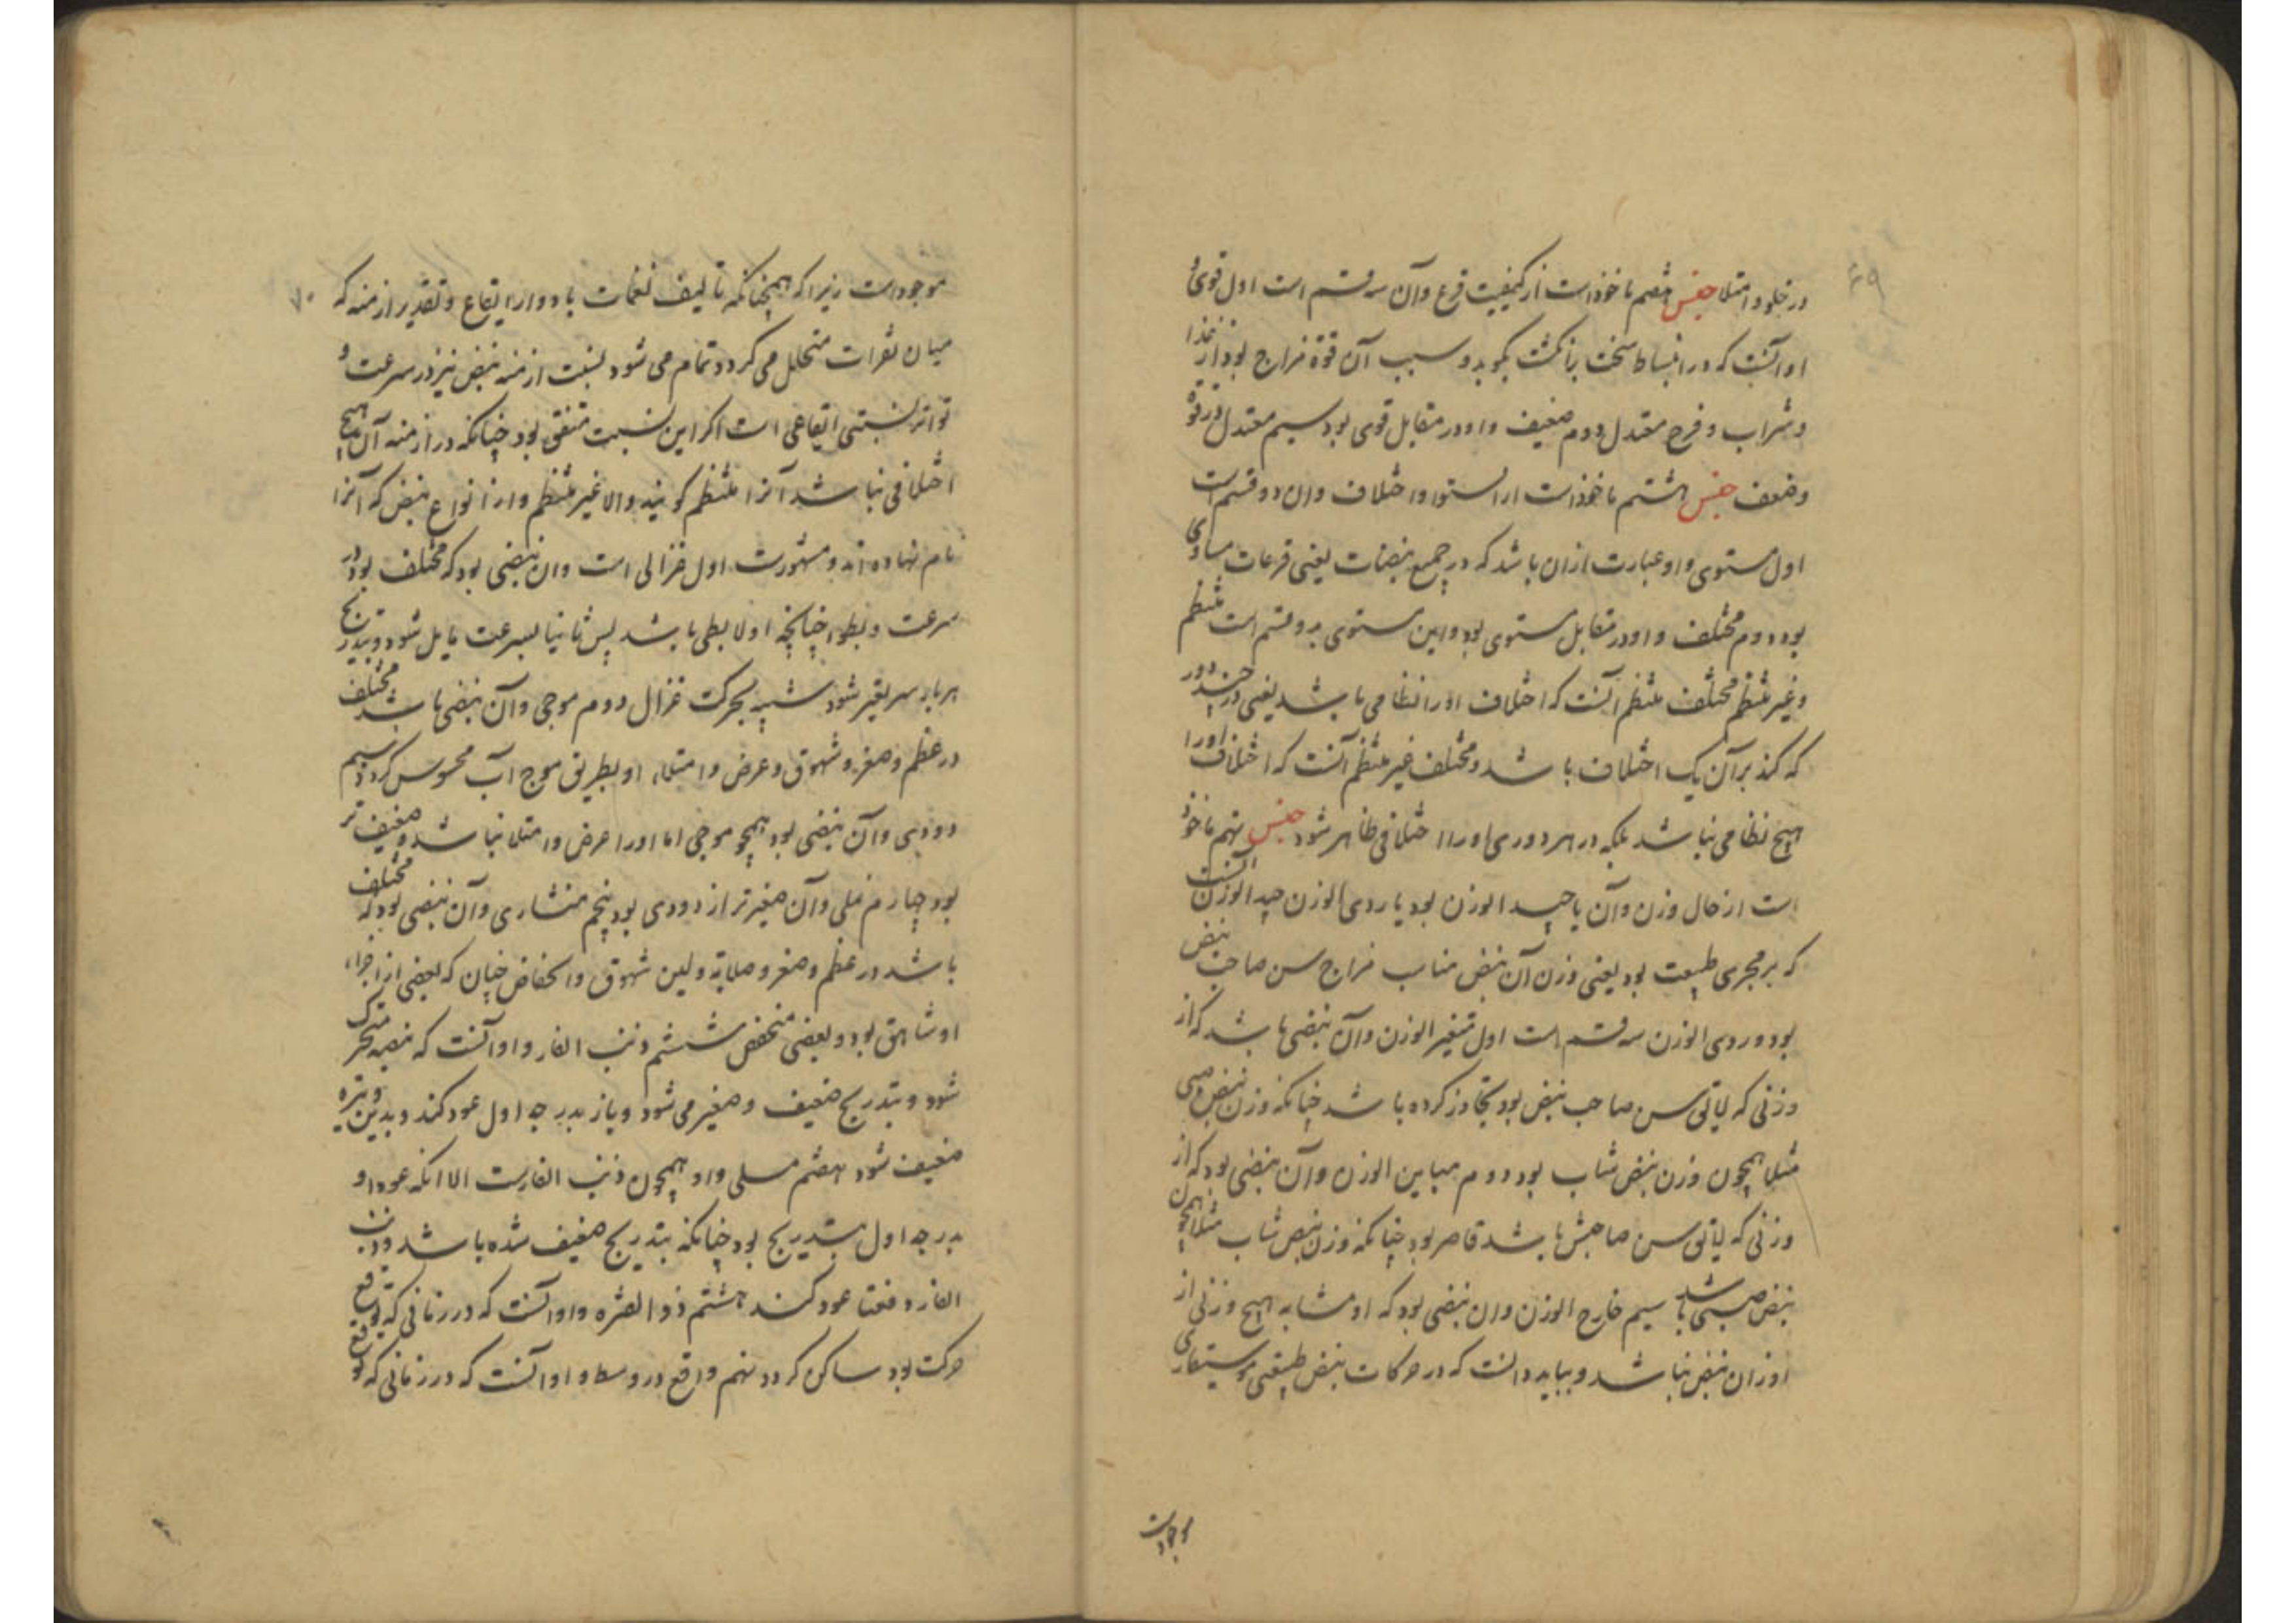 ۶۹
در خلو و امتلا جنس هفتم ماخوذ است از کیفیت قرع و آن سه قسم است اول قوی و
او آنست که در انبساط سخت بانگشت بکوبد و سبب آن قوة مزاج بود از غذا
و شراب و فرح معتدل دوم ضعیف و او در مقابل قوی بود سیم معتدل در قوة
و ضعف جنس هشتم ماخوذ است از استوا و اختلاف و ان دو قسم است
اول مستوی و او عبارت از ان باشد که در جمیع نبضات یعنی قرعات مساوی
بود دوم مختلف و او در مقابل مستوی بود و این مستوی بدو قسم است منتظم
و غیر منتظم مختلف منتظم آنست که اختلاف او را نظامی باشد یعنی در چند دور
که کذبرآن یک اختلاف باشد و مختلف غیر منتظم آنست که اختلاف او را
هیچ نظامی نباشد بلکه در هر دوری او را اختلافی ظاهر شود جنس نهم ماخوذ
است از حال وزن و آن یا جید الوزن بود یا ردی الوزن جید الوزن آنست
که بر مجری طبیعت بود یعنی وزن آن نبض مناسب مزاج سن صاحب نبض
بود و ردی الوزن سه قسم است اول متغیر الوزن و آن نبضی باشد که از
وزنی که لیاتق سن صاحب نبض بود تجاوز کرده باشد چنانکه وزن نبض صبی
مثلا همچون وزن نبض شاب بود دوم مباین الوزن و آن نبضی بود که از
وزنی که لیاتق سن صاحبش باشد قاصر بود چنانکه وزن نبض شاب مثلا همچون
نبض صبی باشد سیم خارج الوزن و ان نبضی بود که او مشابه هیچ وزنی از
اوزان نبض نباشد و بباید دانست که در حرکات نبض طبیعتی موسیقاری
موجود است
۷۰
موجود است زیرا که همچنانکه تالیف نغمات بادوار ایقاع و تقدیر ازمنه که
میان نقرات متخلل می کردد تمام می شود بنسبت ازمنه نبض نیز در سرعت و
تواتر نسبتی ایقاعی است اکر این نسبت متفق بود چنانکه در ازمنه آن هیچ
اختلافی نباشد آنرا منتظم کویند والا غیر منتظم و از انواع نبض که آنرا
نام نهاده اند و مشهورست اول غزالی است و ان نبضی بود که مختلف بود در
سرعت و بطوء چنانچه اولا بطی باشد پس ثانیا بسرعت مایل شود و بتدریج
هر بار سریعتر شود شبیه بحرکت غزال دوم موجی و آن نبضی باشد مختلف
در عظم و صغر و شهوق و عرض و امتلاء او بطریق موج آب محسوس کردد سیم
دودی و آن نبضی بود همچو موجی اما او را عرض و امتلا نباشد و ضعیف تر
بود چهارم نملی و آن صغیر تر از دودی بود پنجم منشاری و آن نبضی بود که مختلف
باشد در عظم و صغر و صلابة و لین شهوق و انخفاض چنان که بعضی از اجزاء
او شاهق بود و بعضی منخفض ششم ذنب الفار و او آنست که نبضه متحرک
شود و بتدریج ضعیف و صغیر می شود و باز بدرجه اول عود کند و بدین وتیره
ضعیف شود هفتم مسلی و او همچون ذنب الفارست الا انکه عود او
بدرجه اول بتدریج بود چنانکه بتدریج ضعیف شده باشد و ذنب
الفار دفعتا عود کند هشتم ذو الفتره و او آنست که در زمانی که توقع
حرکت بود ساکن کردد نهم واقع در وسط و او آنست که در زمانی که توقع